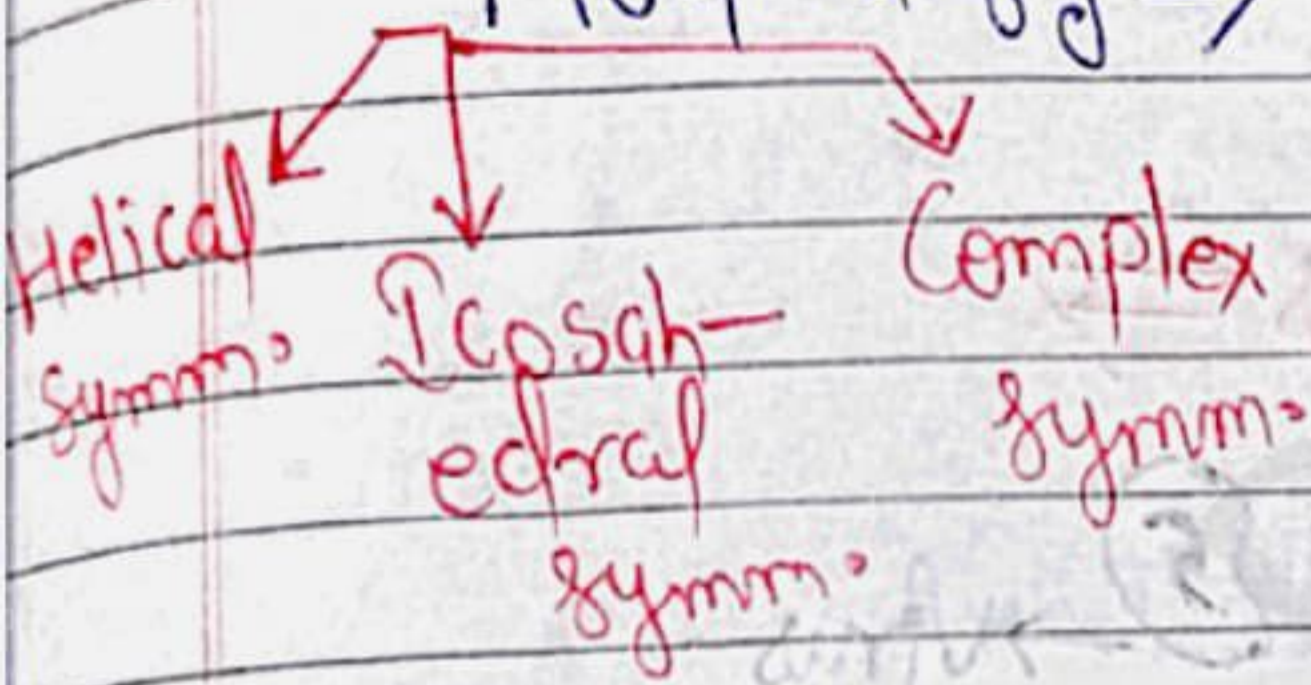 Helical
symm.
Icosah-
edral
symm.
Complex
symm.